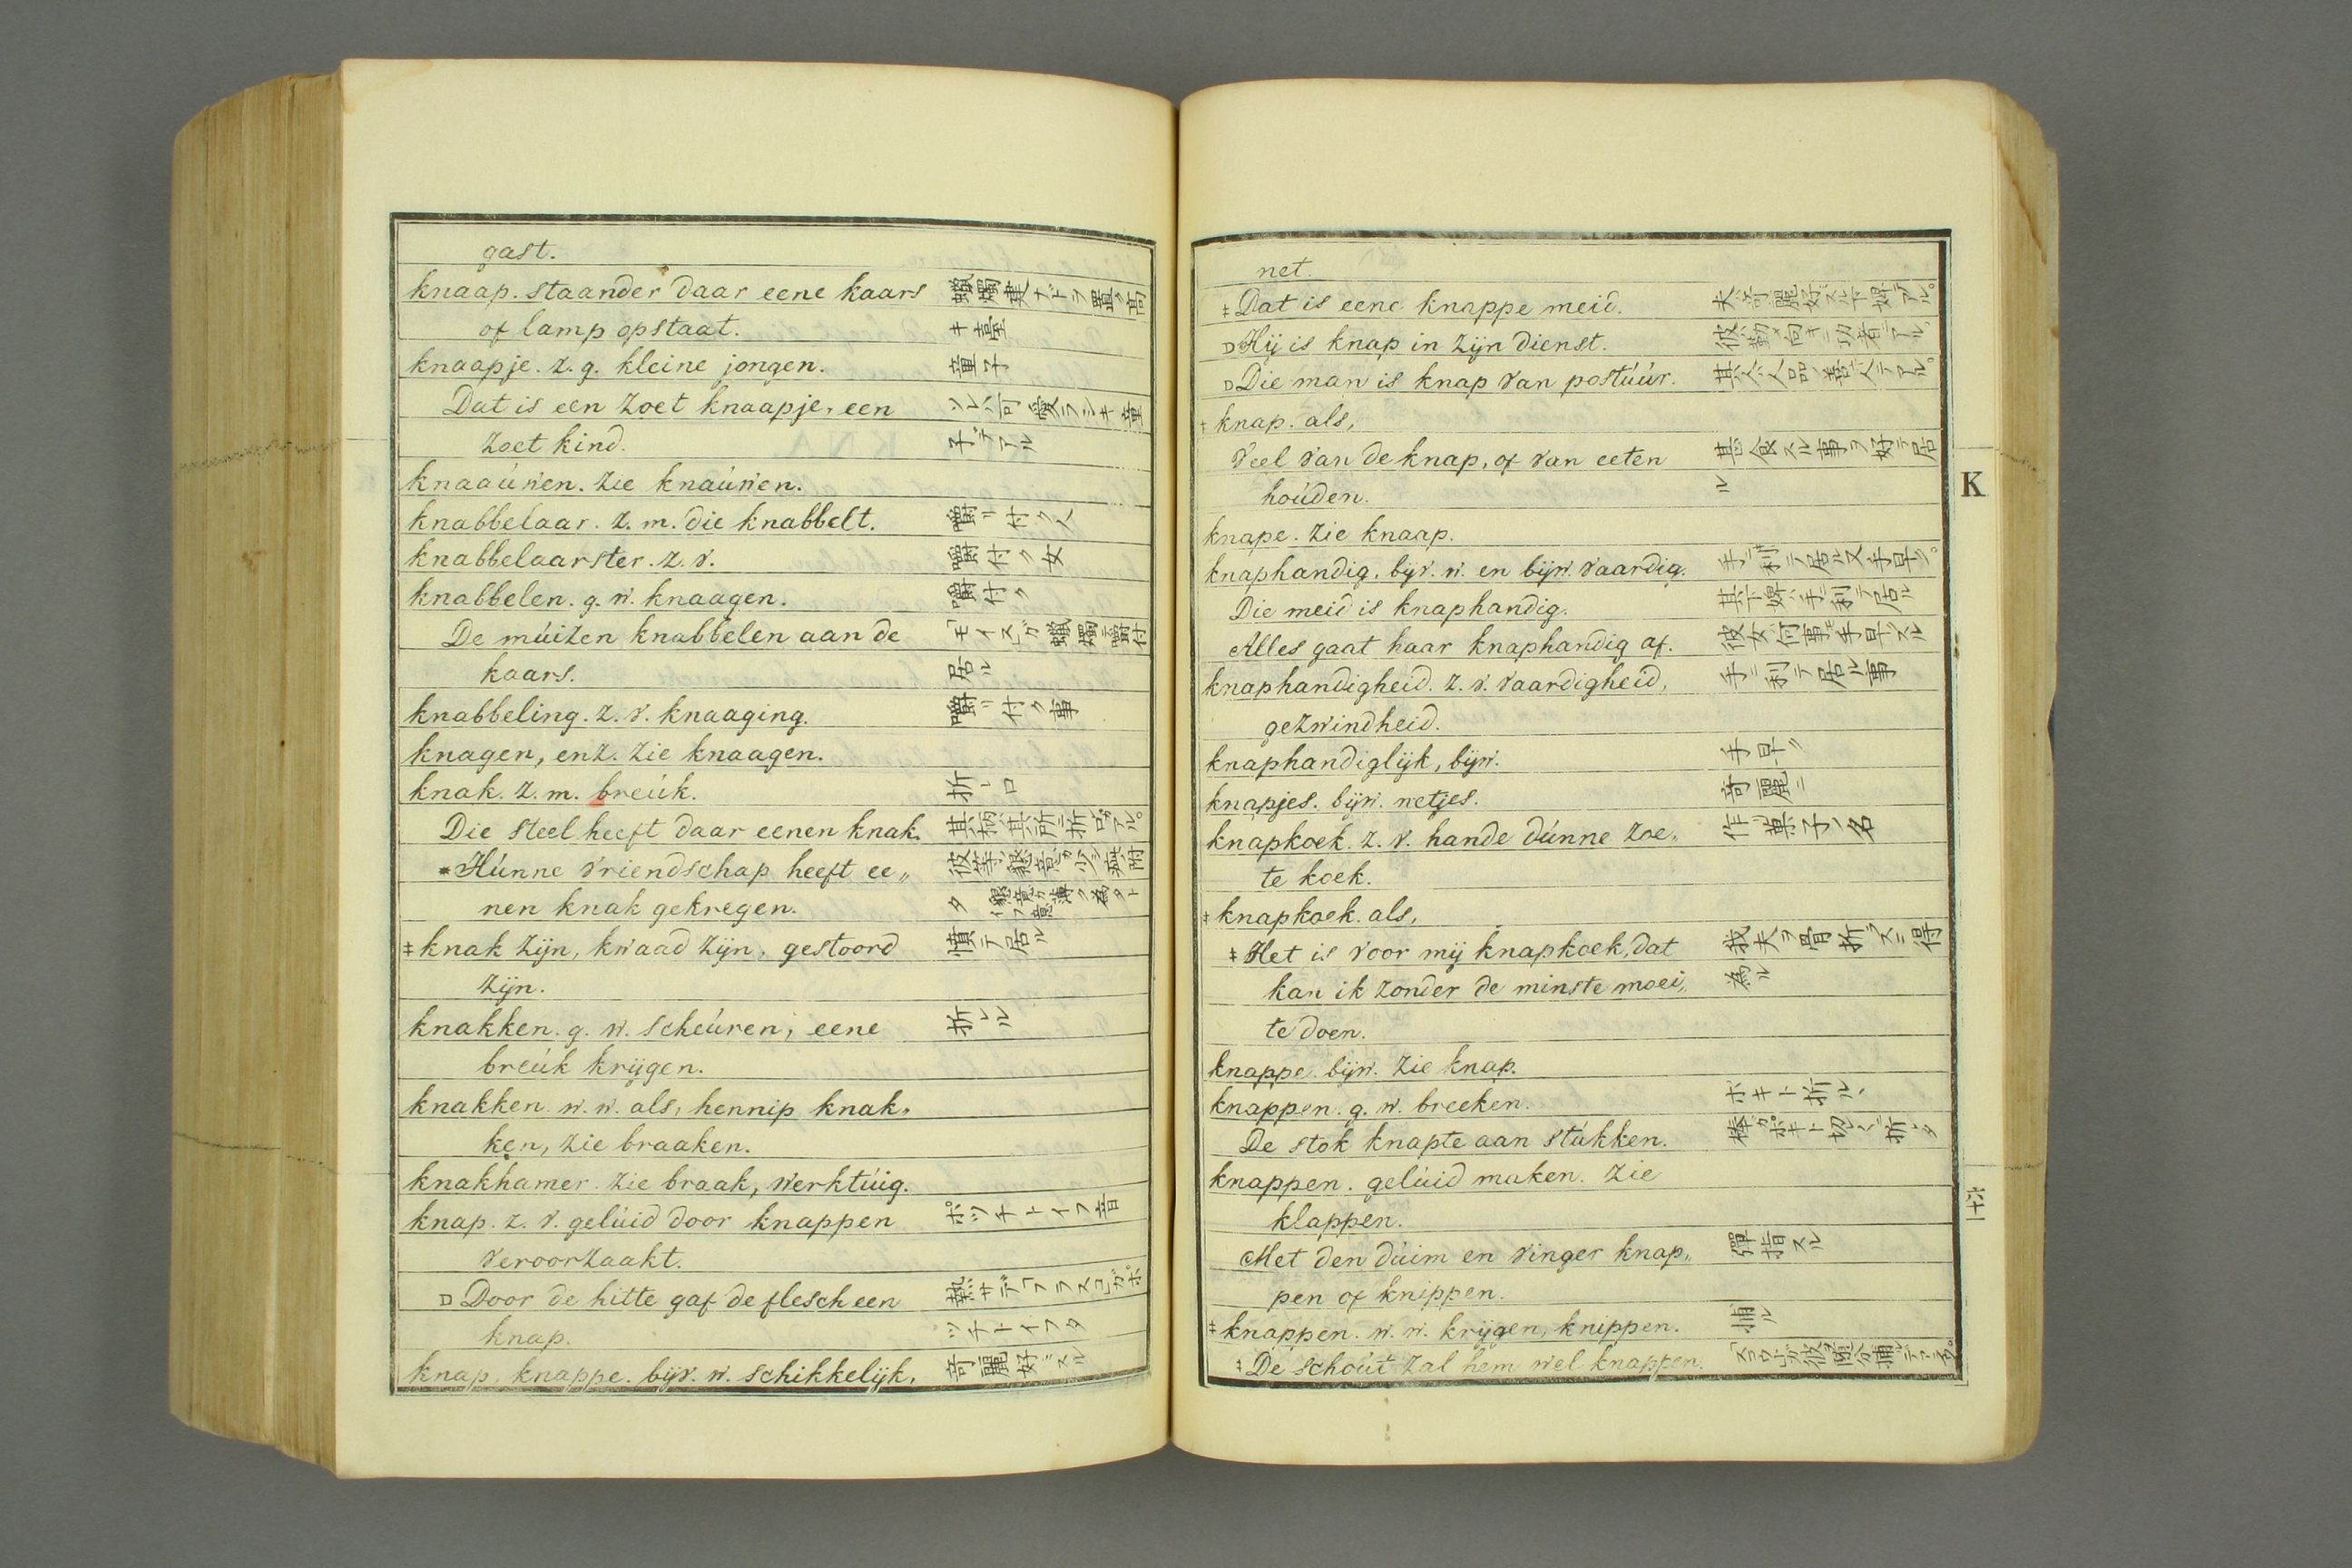 gast.
knaap. staander daar eene kaars 蠟燭建ナドヲ置ク高
of lamp opstaat. キ臺
knaapje. z. g. kleine jongen. 童子
Dat is een zoet knaapje, een ソレハ可愛ラシキ童
zoet kind. 子デアル
knaaúwen. zie knaúwen.
knabbelaar. z. m. die knabbelt. 嚼リ付ク人
knabbelaarster. z. v. 嚼付ク女
knabbelen. g. w. knaagen. 嚼付ク
De múizen knabbelen aan de 蠟燭ニ嚼付
kaars. 居ル
knabbeling. z. v. knaaging. 嚼リ付ク事
knagen, enz. zie knaagen.
knak. z. m. breúk. 折レ口
Die steel heeft daar eenen knak. 其柄ハ其所ニ折口ガアル。
*Húnne vriendschap heeft ee„ 彼等ノ懇意ガ少シ
nen knak gekregen. タ
‡knak zijn, kwaad zijn, gestoord 憤テ居ル
zijn.
knakken. g. w. scheúren, eene 折レル
breúk krijgen.
knakken. w. w. als, hennip knak„
ken, zie braaken.
knakhamer. zie braak, werktúig.
knap. z. v. gelúid door knappen ポツチトイフ音
veroorzaakt.
□Door de hitte gaf de flesch een 熱サデフラスコガポ
knap. ツチトイフタ
knap, knappe. bijv. w. schikkelijk, 奇麗好ニスル
net.
‡Dat is eene knappe meid. 夫ハ奇麗好ニスル下婢デアル。
□Hij is knap in zijn dienst. 彼ハ勤向キニ功者デアル。
□Die man is knap van postúúr. 其人ハ人品ノ善イ人デアル。
‡knap. als,
Veel van de knap, of van eeten 甚食スル事ヲ好テ居
hoúden. ル
knape. zie knaap.
knaphandig. bijv. w. en bijw. vaardig. 手ノ利テ居ル又手早ク。
Die meid is knaphandig. 其下婢ハ手ガ利テ居ル
Alles gaat haar knaphandig af. 彼女ハ何事モ手早クスル
knaphandigheid. z. v. vaardigheid, 手ノ利テ居ル事
gezwindheid.
knaphandiglijk, bijw. 手早ク
knapjes. bijw. netjes. 奇麗ニ
knapkoek. z. v. hande dúnne zoe„ 作リ菓子ノ名
te koek.
‡knapkoek. als,
‡Het is voor mij knapkoek, dat 我夫ヲ骨折ラズニ得
kan ik zonder de minste moei„ 為ル
te doen.
knappe. bijw. zie knap.
knappen. g. w. breeken. ポキト折ル、
De stok knapte aan stúkken. 棒ガポキト切々ニ折レタ
knappen. gelúid maken. zie
klappen.
Met den dúim en vinger knap„ 彈指スル
pen of knippen.
‡knappen. w. w. krijgen, knippen. 捕ル
‡De schoút zal hem wel knappen.
K